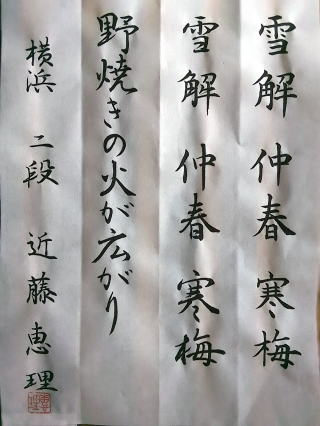 雪解 仲春 寒梅
雪解 仲春 寒梅
野焼きの火が広がり
横浜 二段 近藤恵理